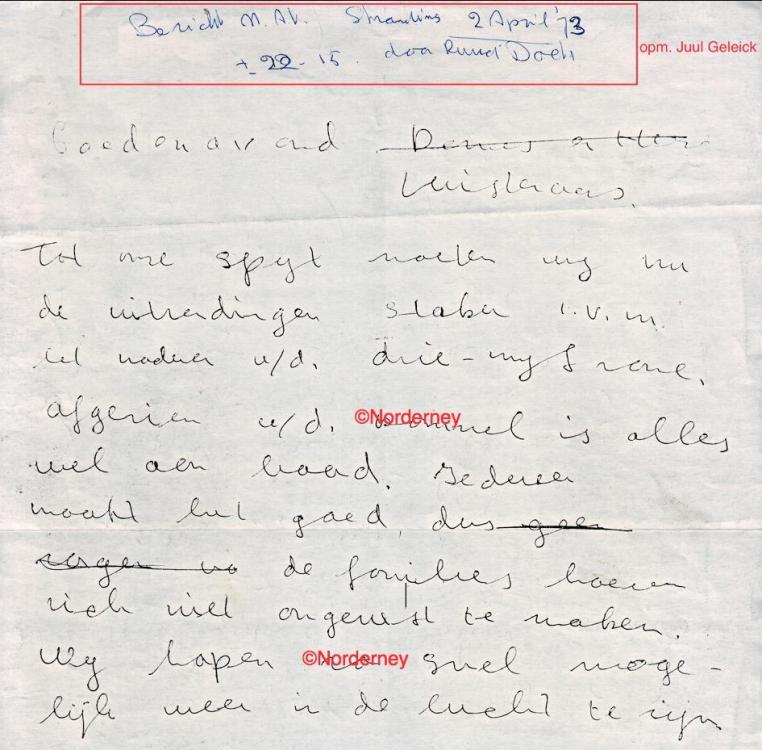 Bericht N.AV. Stranding 2 April '73
± 22-15. door Ruud Doets
opm. Juul Geleick
Goedenavond Dames & Heren
luisteraars.
Tot onze spijt moeten wij nu
de uitzendingen staken i.v.m.
het naderen v/d. drie-mijls zone.
afgezien v/d. rommel is alles
©Norderney
wel aan boord. Iedereen
maakt het goed, dus geen
zorgen de families hoeven
zich niet ongerust te maken.
Wij hopen zo snel moge-
©Norderney
lijk weer in de lucht te zijn